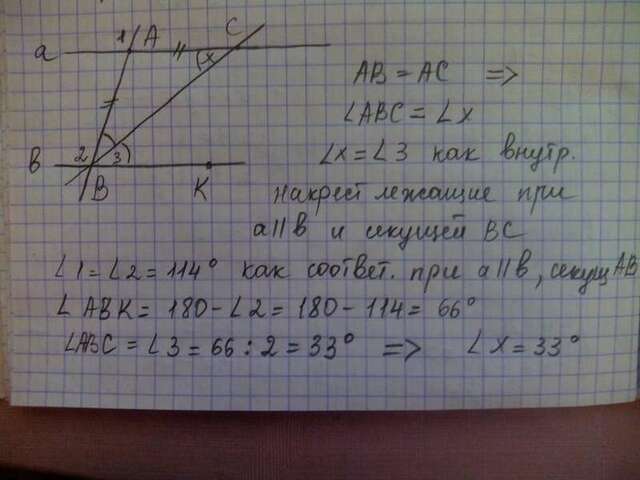 1 A C
a x
AB = AC =>
∠ABC = ∠X
2 3
∠X = ∠3 как внутр.
в B K
накрест лежащие при
a || в и секущей BC
∠1 = ∠2 = 114° как соответ. при a || в, секущ AB
∠ABK = 180 - ∠2 = 180 - 114 = 66°
∠ABC = ∠3 = 66 : 2 = 33° => ∠X = 33°